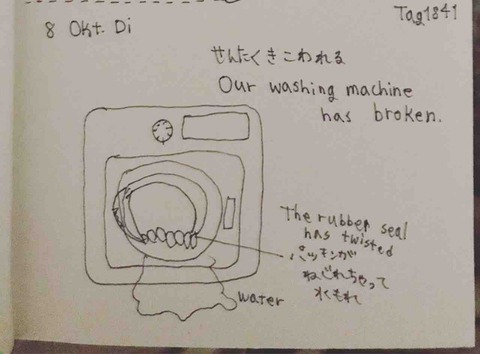 Tag1841
8 Okt. Di
せんたくきこわれる
Our washing machine
has broken.
The rubber seal
has twisted
パッキンが
ねじれちゃって
水もれ
water